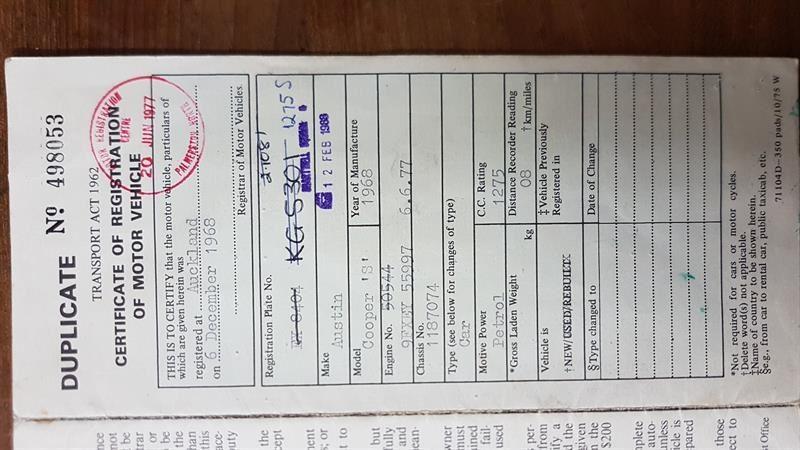 DUPLICATE No 498053
TRANSPORT ACT 1962
CERTIFICATE OF REGISTRATION
OF MOTOR VEHICLE
REGISTRATION
CENTRE
20 JUN 1977
PALMERSTON NORTH
THIS IS TO CERTIFY that the motor vehicle, particulars of
which are given herein was
registered at Auckland
on 6 December 1968
Registrar of Motor Vehicles.
Registration Plate No.
KG5301 1275S
Make
Austin
12 FEB 1988
Model
Cooper 'S'
Year of Manufacture
1968
Engine No. 50544
9FXEY 55997 6.6.77
Chassis No.
1187074
Type (see below for changes of type)
Car
Motive Power
Petrol
C.C. Rating
1275
*Gross Laden Weight
kg
Distance Recorder Reading
08
†km/miles
Vehicle is
†NEW/USED/REBUILT
‡Vehicle Previously
Registered in
§Type changed to
Date of Change
*Not required for cars or motor cycles.
†Delete word(s) not applicable.
‡Name of country to be shown herein.
§e.g., from car to rental car, public taxicab, etc.
71104D—350 pads/10/75 W